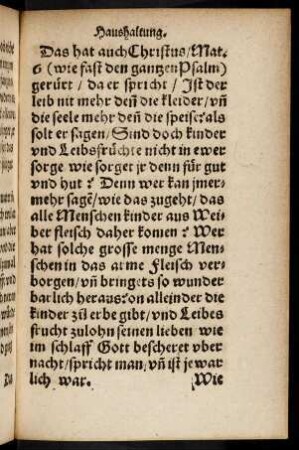 Haushaltung.
Das hat auch Christus/Mat.
6 (wie fast den gantzen Psalm)
gerürt / da er spricht / Jst der
leib nit mehr deñ die kleider/vñ
die seele mehr deñ die speise? als
solt er sagen/Sind doch kinder
vnd Leibsfrüchte nicht in ewer
sorge wie sorget jr denn für gut
vnd hut? Denn wer kan jmer-
mehr sagẽ/wie das zugeht/ das
alle Menschen kinder aus Wei
ber fleisch daher komen? Wer
hat solche grosse menge Men-
schen in das arme Fleisch ver-
borgen/vñ bringets so wunder
barlich heraus? on allein der die
kinder zũ erbe gibt/vnd Leibes
frucht zu lohn seinen lieben wie
im schlaff Gott bescheret vber
nacht/spricht man/vñ ist je war
lich war. Wie